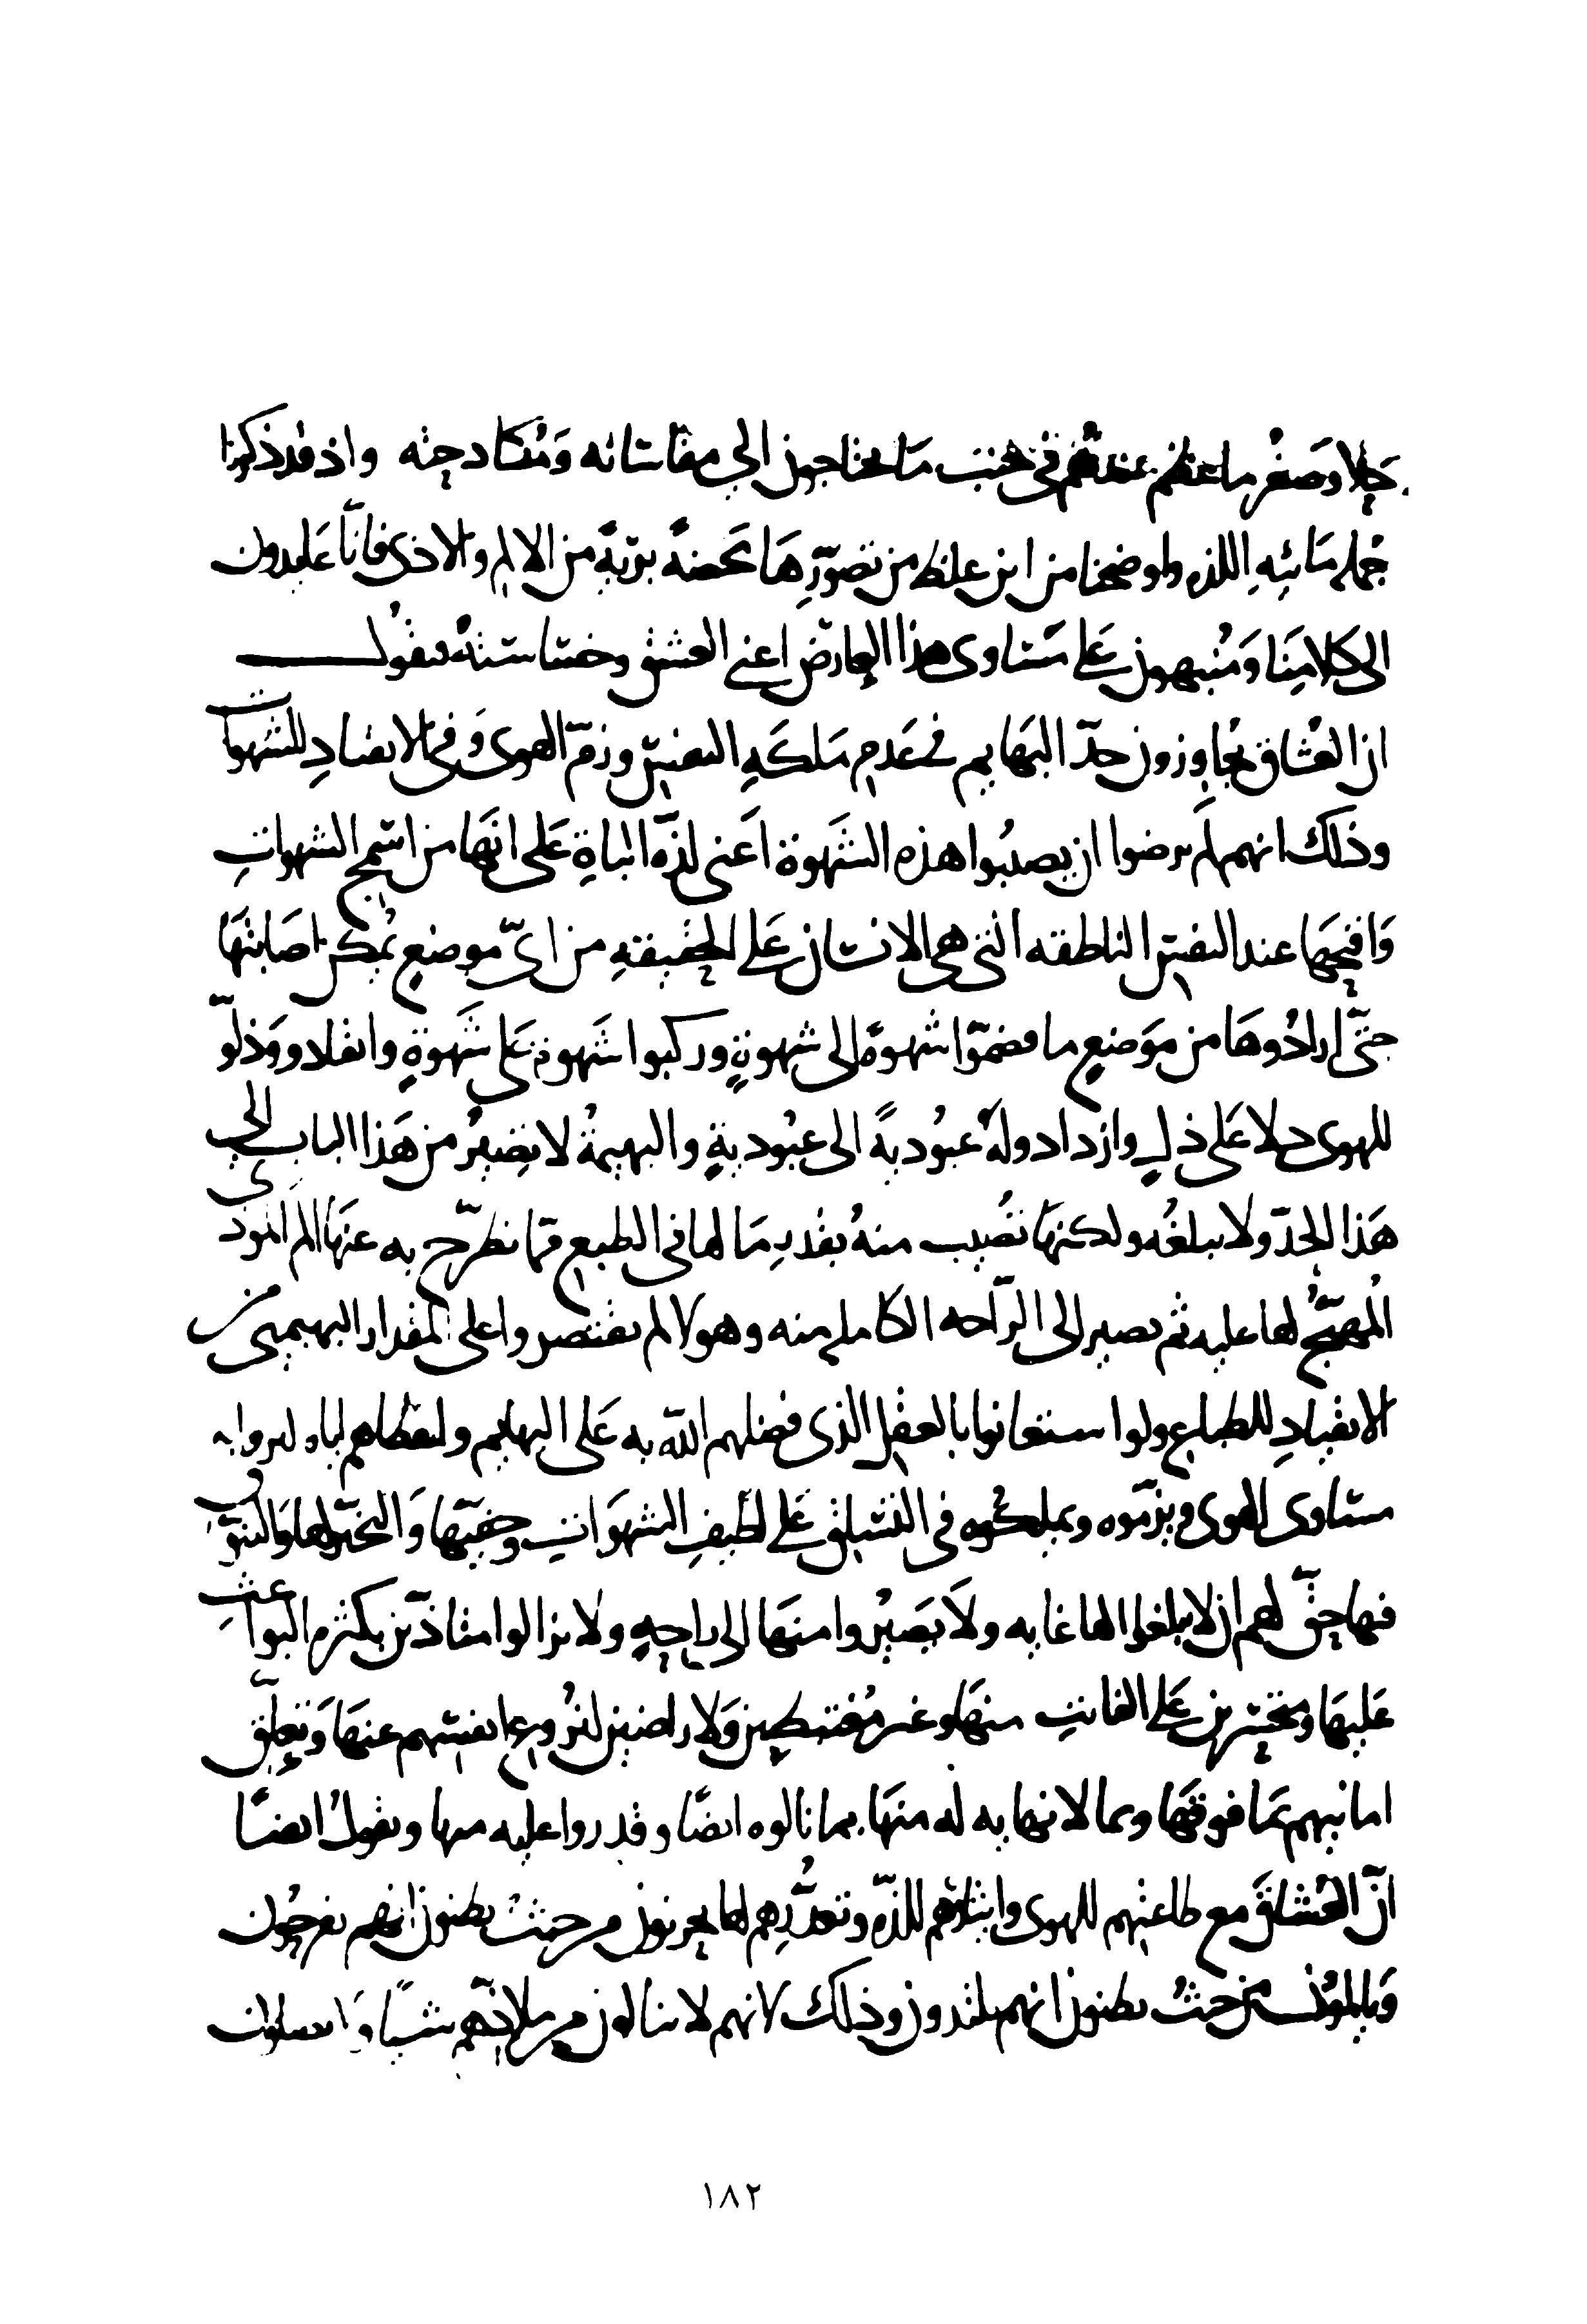 جلا وصغر ما عظم عندهم في جنب ما يحتاجون الى مقاساته ومكادحته واذ قد ذكرنا
جملة مائية اللذة واوضحنا من اين غلط من تصورها محضة برية من الالم والاذى فانا عايدون
الى كلامنا ومنبهون على مساوى هذا العارض اعنى العشق وخساسته فنقول
ان العشاق يجاوزون حد البهايم فى عدم ملكة النفس وزم الهوى وفى الانقياد للشهوات
وذلك انهم لم يرضوا ان يصيبوا هذه الشهوة اعنى لذة الباة على انها من اسمج الشهوات
واقبحها عند النفس الناطقة التى هى الانسان على الحقيقة من اى موضع يمكن اصابتها
حتى ارادوها من موضع ما فضموا شهوة الى شهوة وركبوا شهوة على شهوة وانقادوا وذلوا
للهوى ذلا على ذل وازدادوا له عبودية الى عبودية والبهيمة لا تصير من هذا الباب الى
هذا الحد ولا تبلغه ولكنها تصيب منه بقدر ما لها فى الطبع مما تطرح به عنها الم الموذى
المهيج لها عليه ثم تصير الى الراحة الكاملة منه وهولا لم يقتصروا على المقدار البهيمى من
الانقياد للطباع ولو استعانوا بالعقل الذى فضلهم الله به على البهايم واعطاهم اياه ليروا به
مساوى الهوى ويزموه ويملكوه فى التسلق على لطيف الشهوات وخفيها والتخير لها والتنوق
فيها حق لهم ان لا يبلغوا الها غاية ولا يصيروا منها الى راحة ولا يزالوا متاذين بكثرة البواعث
عليها ومتحسرين على الفائت منها وغير مغتبطين ولا راضين لنزوع انفسهم عنها وتعلق
امانيهم بما فوقها وبما لا نهاية له منها بما نالوه ايضا وقدروا عليه منها ونقول ايضا
ان العشاق مع طاعتهم للهوى وايثارهم للذة وتعبدهم لها يحزنون من حيث يظنون انهم يفرحون
ويالمون من حيث يظنون انهم يلذون وذلك لانهم لا ينالون من ملاذهم شيا
١٨٢